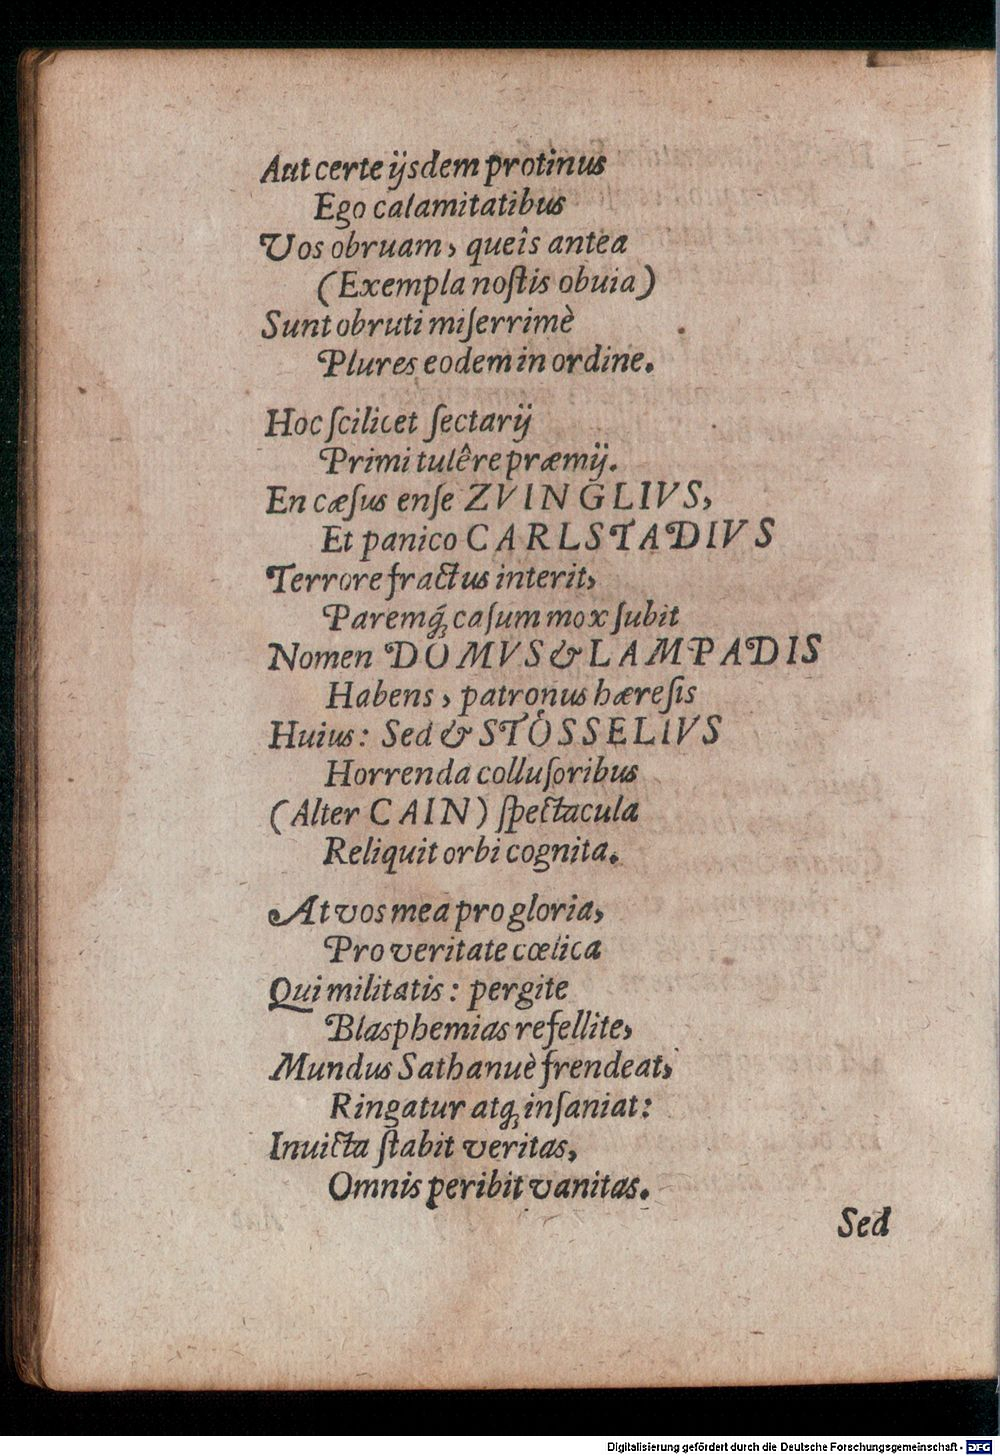 Aut certe ijsdem protinus
Ego calamitatibus
Vos obruam, queîs antea
(Exempla noſtis obuia)
Sunt obruti miſerrimè
Plures eodem in ordine.
Hoc ſcilicet ſectarij
Primi tulêre præmij.
En cæſus enſe ZVINGLIVS,
Et panico CARLSTADIVS
Terrore fractus interit,
Paremq́ꝫ caſum mox ſubit
Nomen DOMVS & LAMPADIS
Habens, patronus hæreſis
Huius: Sed & STÖSSELIVS
Horrenda colluſoribus
(Alter CAIN) ſpectacula
Reliquit orbi cognita.
At vos mea pro gloria,
Pro veritate cœlica
Qui militatis: pergite
Blasphemias refellite,
Mundus Sathanuè frendeat,
Ringatur atqꝫ inſaniat:
Inuicta ſtabit veritas,
Omnis peribit vanitas.
Sed
Digitalisierung gefördert durch die Deutsche Forschungsgemeinschaft - DFG